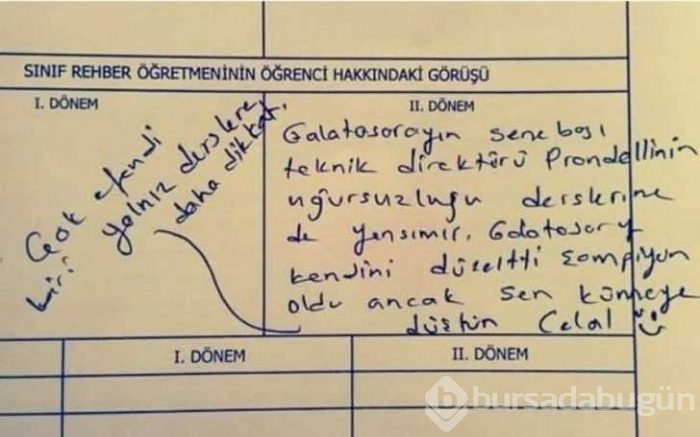 SINIF REHBER ÖĞRETMENİNİN ÖĞRENCİ HAKKINDAKİ GÖRÜŞÜ
I. DÖNEM
Çok efendi
biri.
yalnız derslere
daha dikkat.
II. DÖNEM
Galatasarayın sene başı
teknik direktörü Prandellinin
uğursuzluğu derslerine
de yansımış. Galatasaray
kendini düzeltti şampiyon
oldu ancak sen kümeye
düştün Celal
I. DÖNEM
II. DÖNEM
b bursadabugün